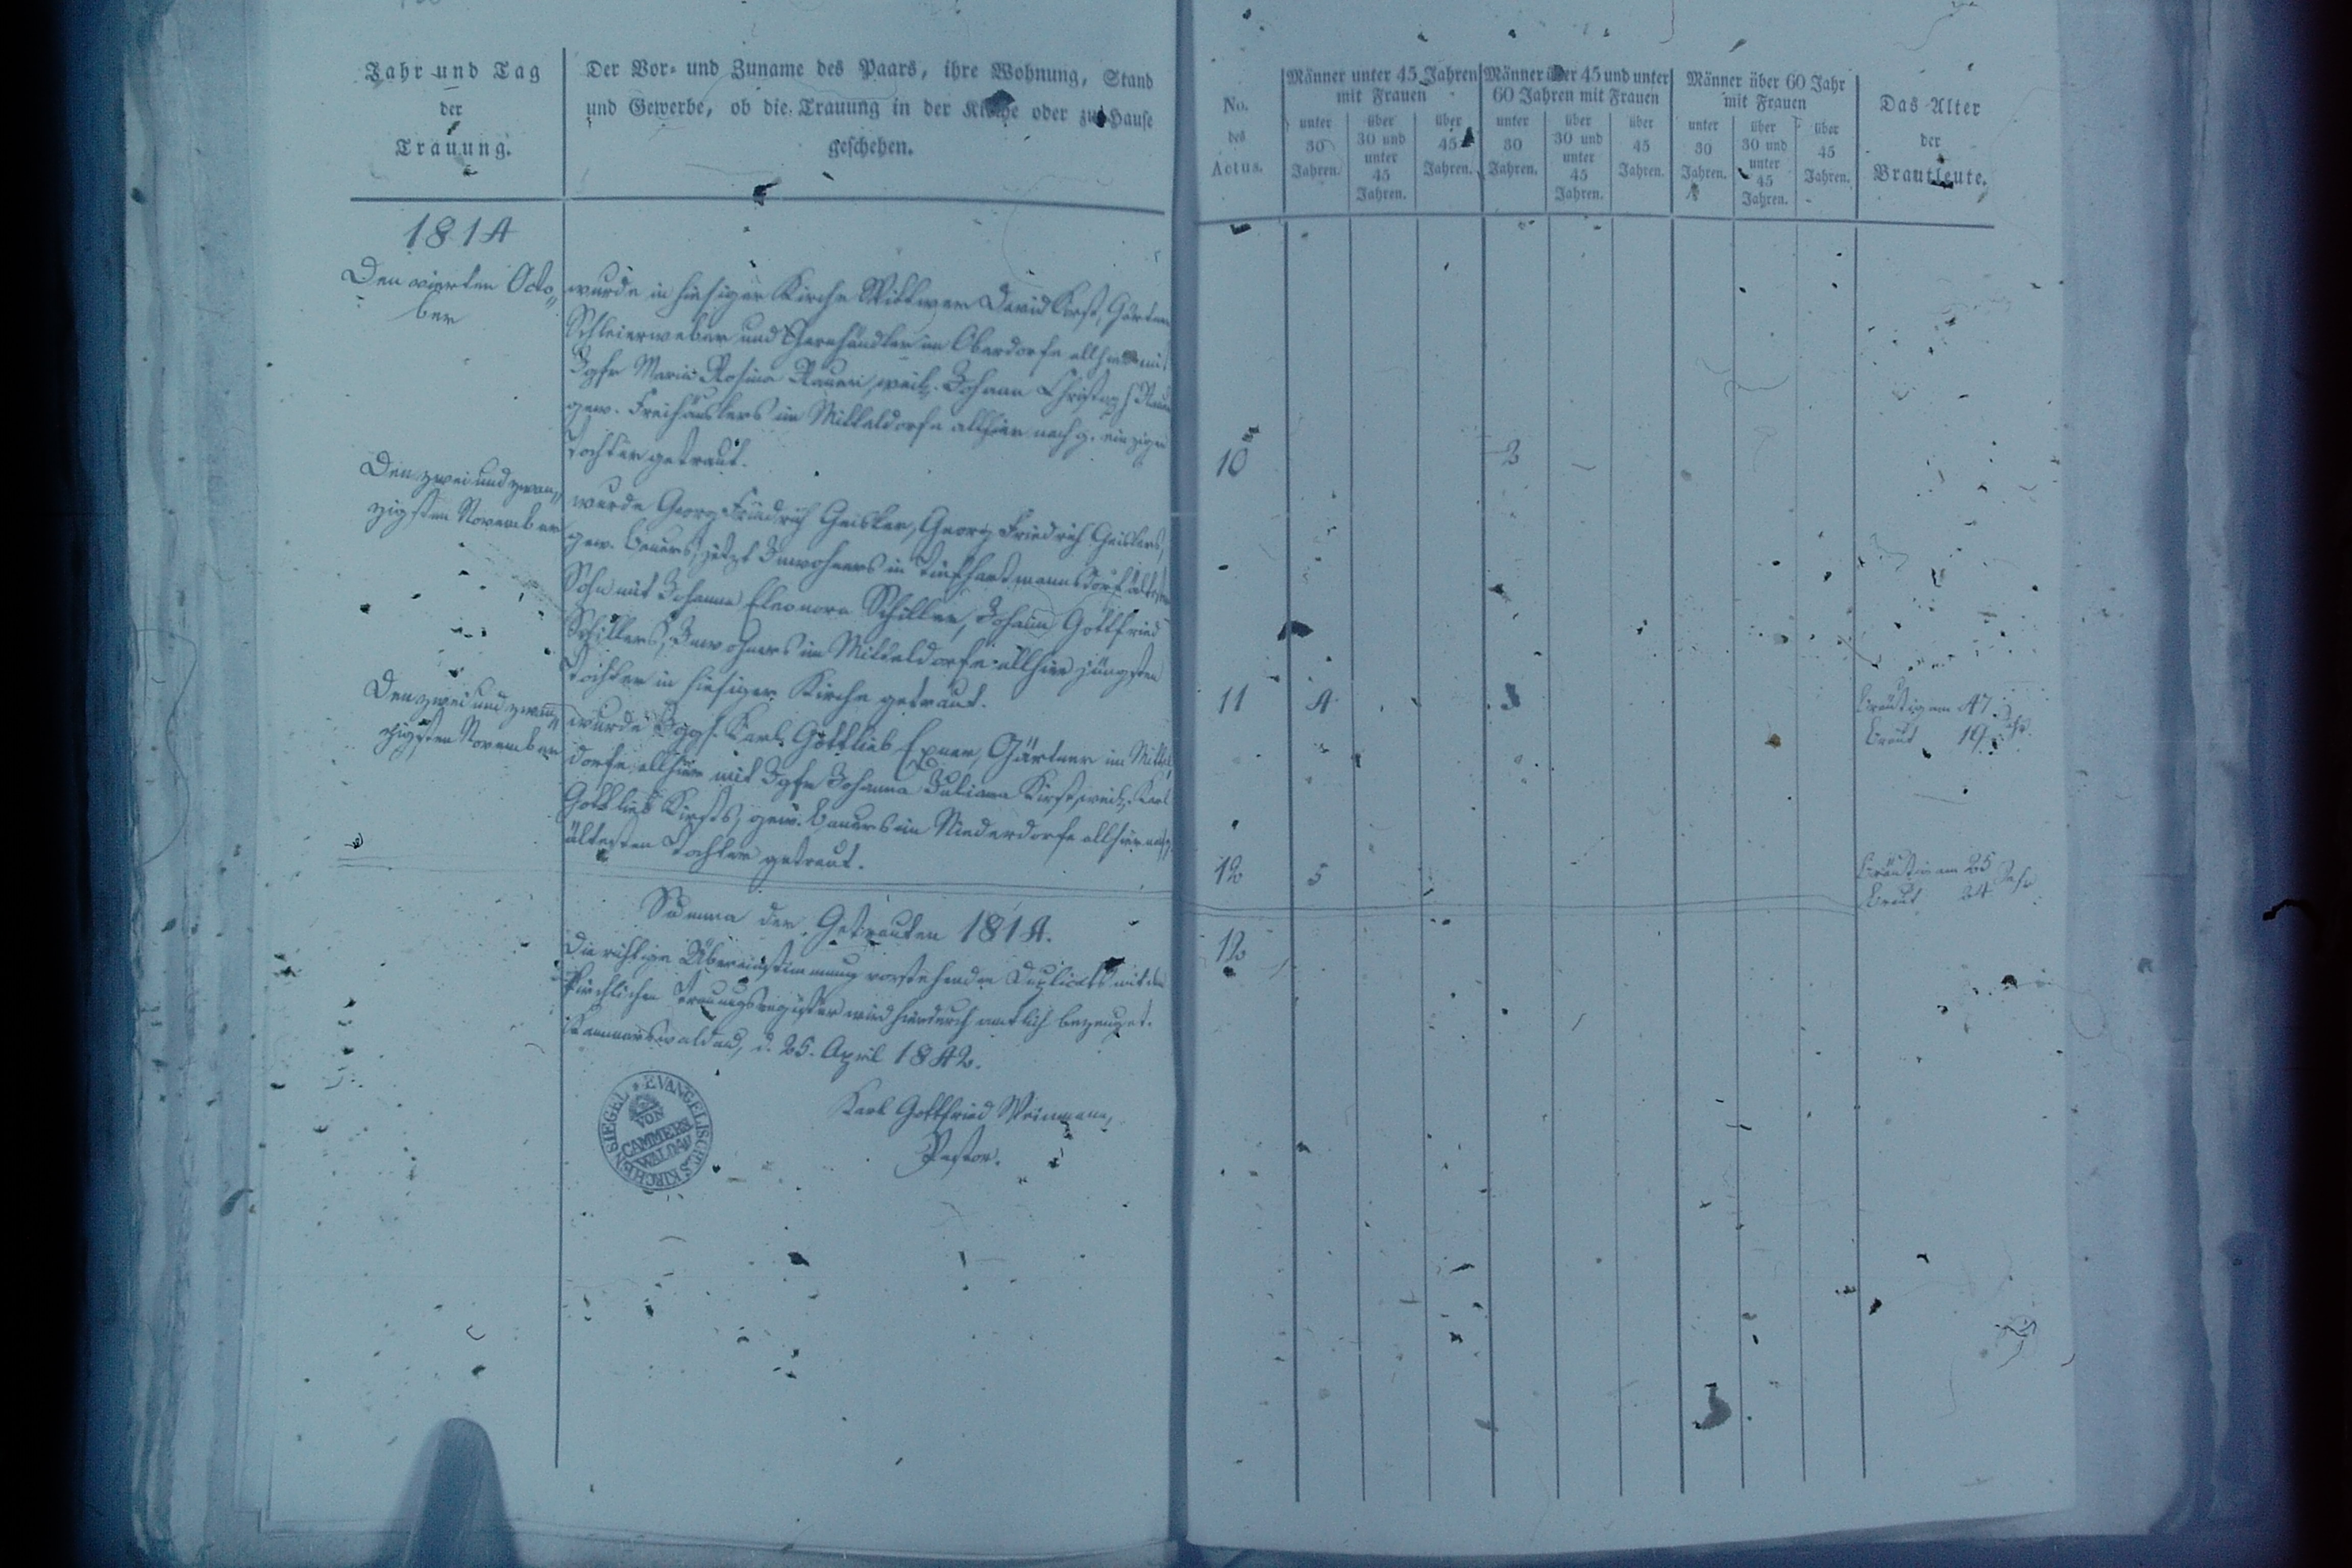 Jahr und Tag
der
Trauung.
Der Vor- und Zuname des Paars, ihre Wohnung, Stand
und Gewerbe, ob die Trauung in der Kirche oder zu Hause
geschehen.
1814
Den vierten Octo„
ber
wurde in hiesiger Kirche Wittwer David Kirst, Gärtner
Schleierweber und Garnhändler im Oberdorfe allhier mit
Igfr Maria Rosina weil. Johann Christoph
gew. Freihäuslers im Mitteldorfe allhier nachg. einzigen
Tochter getraut.
Den zwei und zwan„
zigsten November
wurde Georg Friedrich Geisler, Georg Friedrich Geislers,
gew. Bauers, jetzt Inwohners in Tiefhartmannsdorf
Sohn mit Johanna Eleonora Schiller, Johann Gottfried
Schillers, Inwohners im Mitteldorfe allhier jüngsten
Tochter in hiesiger Kirche getraut.
Den zwei und zwan„
zigsten November
wurde Jggs. Karl Gottlieb Exner, Gärtner im Mittel
dorfe allhier mit Igfr Johanna Juliana Kirst, weil. Karl
Gottlieb Kirsts, gew. Bauers im Niederdorfe allhier nachg.
ältesten Tochter getraut.
Summa der Getrauten 1814.
Die richtige Übereinstimmung vorstehenden Duplicats mit dem
kirchlichen Trauungsregister wird hierdurch amtlich bezeuget.
Kammerswaldau, d. 25. April 1842.
Karl Gottfried Weinmann,
Pastor.
EVANGELISCHES KIRCHENSIEGEL
VON
CAMMERS
WALDAU
No.
des
Actus.
Männer unter 45 Jahren
mit Frauen
unter
30
Jahren.
über
30 und
unter
45
Jahren.
über
45
Jahren.
Männer über 45 und unter
60 Jahren mit Frauen
unter
30
Jahren.
über
30 und
unter
45
Jahren.
über
45
Jahren.
Männer über 60 Jahr
mit Frauen
unter
30
Jahren.
über
30 und
unter
45
Jahren.
über
45
Jahren.
Das Alter
der
Brautleute.
10
11 4 Bräutigam 47
Braut 19
12 5 Bräutigam 25 Jahr
Braut 24
12